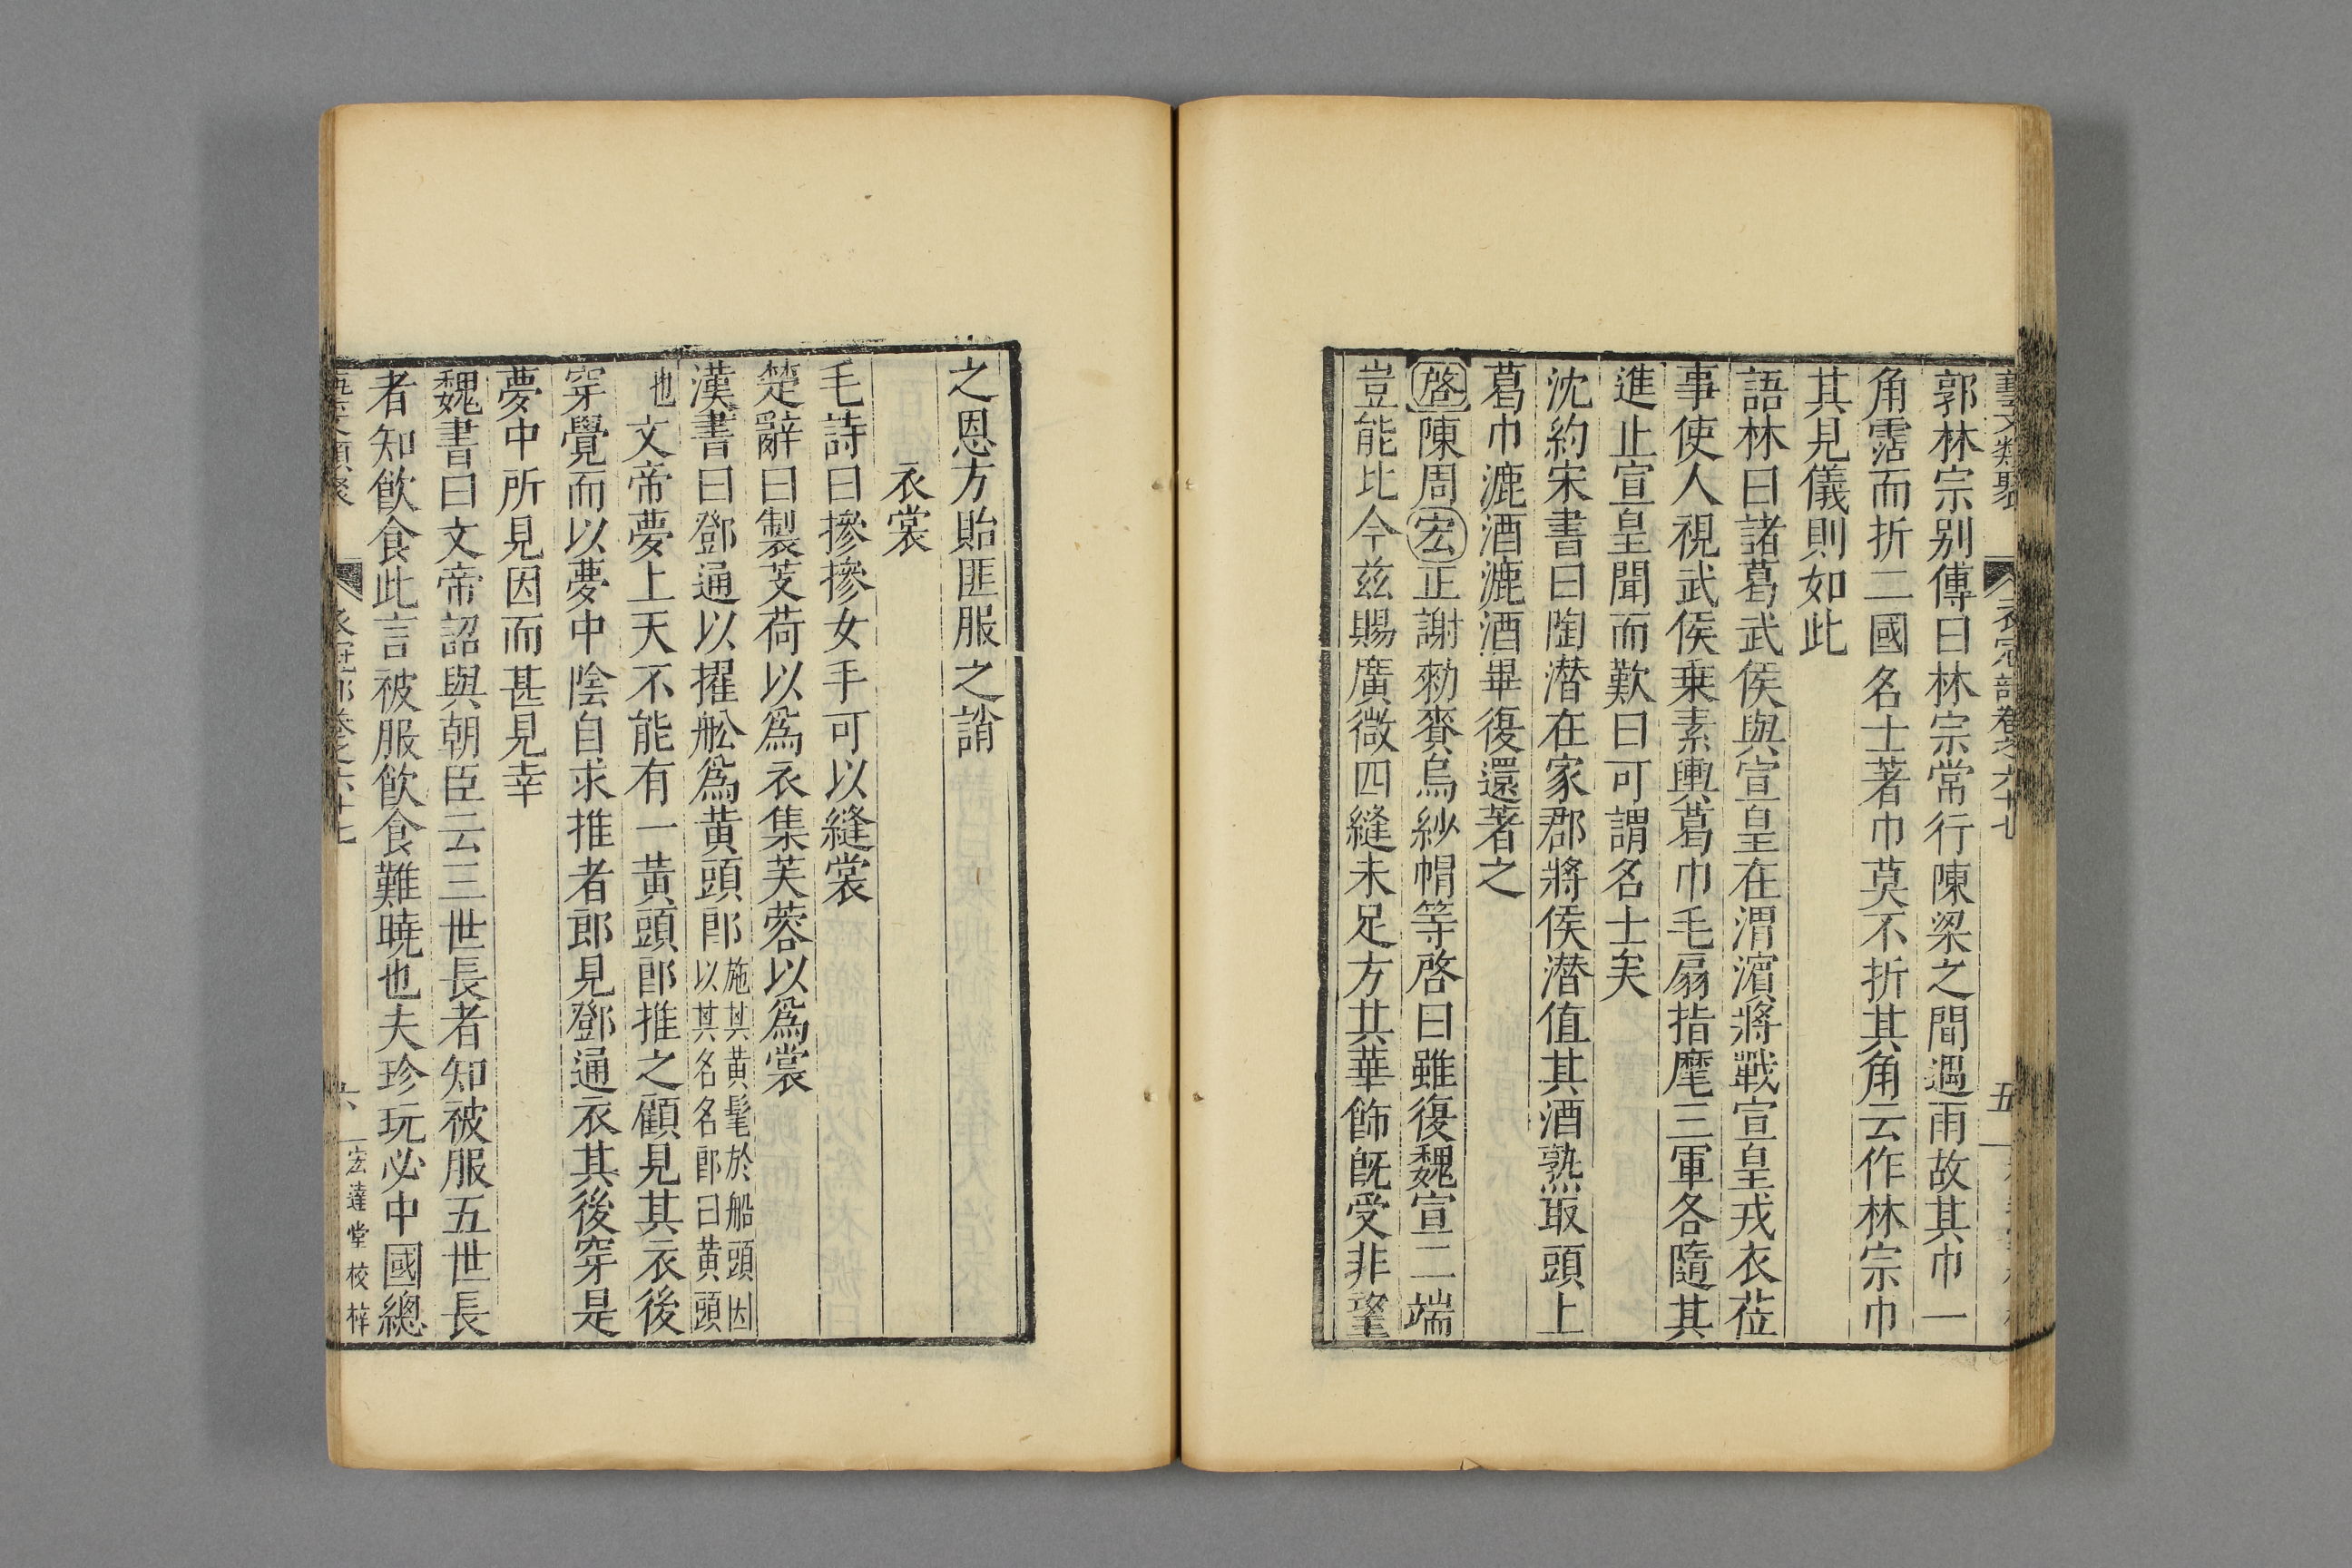 藝文類聚 衣冠部卷之六十七 五
郭林宗别傳曰林宗常行陳梁之間遇雨故其巾一
角霑而折二國名士著巾莫不折其角云作林宗巾
其見儀則如此
語林曰諸葛武侯與宣皇在渭濵將戰宣皇戎衣莅
事使人視武侯乗素輿葛巾毛扇指麾三軍各隨其
進止宣皇聞而歎曰可謂名士矣
沈約宋書曰陶潜在家郡將侯潜值其酒熟取頭上
葛巾漉酒漉酒畢復還著之
啓陳周宏正謝勑賚烏紗帽等啓曰雖復魏宣二端
豈能比今茲賜廣微四縫未足方其華飾旣受非望
之恩方貽匪服之誚
衣裳
毛詩曰摻摻女手可以縫裳
楚辭曰製芰荷以爲衣集芙蓉以爲裳
漢書曰鄧通以擢舩爲黄頭郎施其黄髦於船頭因以其名名郎曰黄頭
也文帝夢上天不能有一黄頭郎推之顧見其衣後
穿覺而以夢中陰自求推者郎見鄧通衣其後穿是
夢中所見因而甚見幸
魏書曰文帝詔與朝臣云三世長者知被服五世長
者知飮食此言被服飮食難曉也夫珍玩必中國總
藝文類聚 衣冠部卷之六十七 六 宏達堂校梓